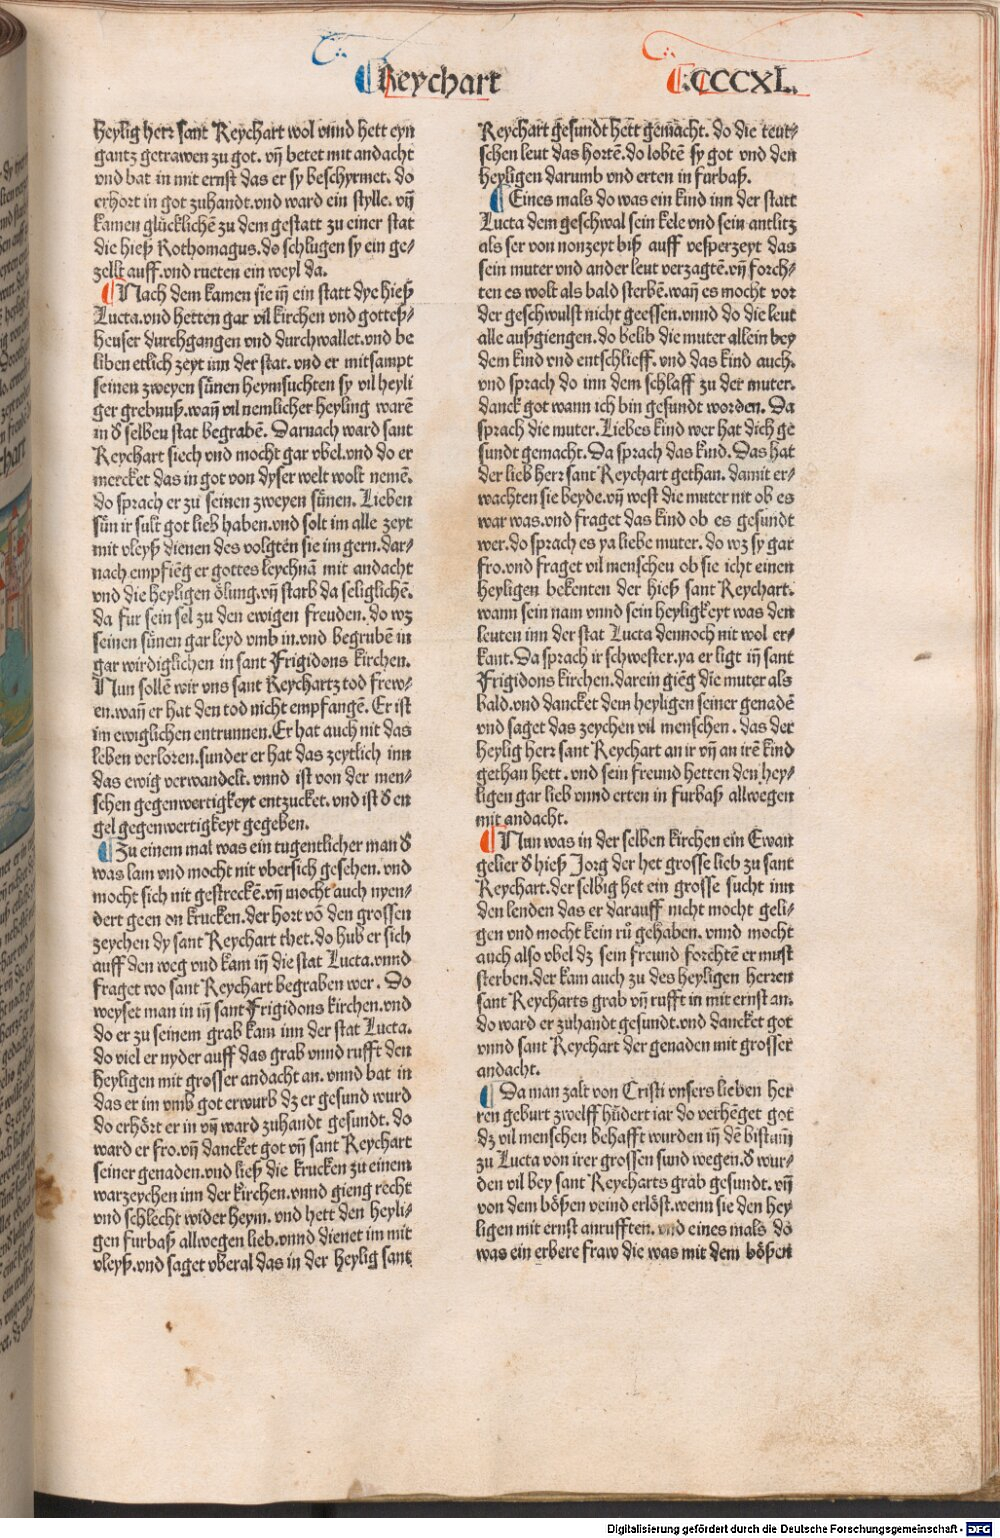 Reychart
CCCXL.
heylig herr sant Reychart wol vnnd hett eyn
gantz getrawen zu got. vñ betet mit andacht
vnd bat in mit ernst das er sy beschyrmet. do
erhort in got zuhandt. vnd ward ein stylle. vñ
kamen glücklichē zu dem gestatt zu einer stat
die hieß Rothomagus. do schlugen sy ein ge-
zellt auff. vnd rueten ein weyl da.
Nach dem kamen sie iñ ein statt dye hieß
Lucta. vnd hetten gar vil kirchen vnd gotteß-
heuser durchgangen vnd durchwallet. vnd be
liben etlich zeyt inn der stat. vnd er mitsampt
seinen zweyen sünen heymsuchten sy vil heyli
ger grebnuß. wañ vil nemlicher heyling warē
in d̕ selben stat begrabē. Darnach ward sant
Reychart siech vnd mocht gar vbel. vnd do er
mercket das in got von dyser welt wolt nemē.
do sprach er zu seinen zweyen sünen. Lieben
sün ir sult got lieb haben. vnd solt im alle zeyt
mit vleyß dienen des volgten sie im gern. dar-
nach empfieng er gottes leychnā mit andacht
vnd die heyligen ölung. vñ starb da seliglichē.
da fur sein sel zu den ewigen freuden. do wz
seinen sünen gar leyd vmb in. vnd begrubē in
gar wirdiglichen in sant Frigidons kirchen.
Nun sollē wir vns sant Reychartz tod frew-
en. wañ er hat den tod nicht empfangē. Er ist
im ewiglichen entrunnen. Er hat auch nit das
leben verloren. sunder er hat das zeytlich inn
das ewig verwandelt. vnnd ist von der men-
schen gegenwertigkeyt entzucket. vnd ist d̕ en
gel gegenwertigkeyt gegeben.
Zu einem mal was ein tugentlicher man d̕
was lam vnd mocht nit vbersich gesehen. vnd
mocht sich nit gestreckē. vñ mocht auch nyen-
dert geen on krucken. der hort vō den grossen
zeychen dy sant Reychart thet. do hub er sich
auff den weg vnd kam iñ die stat Lucta. vnnd
fraget wo sant Reychart begraben wer. Do
weyset man in iñ sant Frigidons kirchen. vnd
do er zu seinem grab kam inn der stat Lucta.
do viel er nyder auff das grab vnnd rufft den
heyligen mit grosser andacht an. vnnd bat in
das er im vmb got erwurb dz er gesund wurd
do erhört er in vñ ward zuhandt gesundt. do
ward er fro. vñ dancket got vñ sant Reychart
seiner genaden. vnd ließ die krucken zu einem
warzeychen inn der kirchen. vnnd gieng recht
vnd schlecht wider heym. vnd hett den heyli-
gen furbaß allwegen lieb. vnnd dienet im mit
vleyß. vnd saget vberal das in der heylig sant
Reychart gesundt hett gemacht. do die teut-
schen leut das hortē. do lobtē sy got vnd den
heyligen darumb vnd erten in furbaß.
Eines mals do was ein kind inn der statt
Lucta dem geschwal sein kele vnd sein antlitz
als ser von nonzeyt biß auff vesperzeyt das
sein muter vnd ander leut verzagtē. vñ forch-
ten es wolt als bald sterbē. wañ es mocht vor
der geschwulst nicht geessen. vnnd do die leut
alle außgiengen. do belib die muter allein bey
dem kind vnd entschlieff. vnd das kind auch.
vnd sprach do inn dem schlaff zu der muter.
danck got wann ich bin gesundt worden. Da
sprach die muter. Liebes kind wer hat dich ge
sundt gemacht. Da sprach das kind. Das hat
der lieb herr sant Reychart gethan. damit er-
wachten sie beyde. vñ west die muter nit ob es
war was. vnd fraget das kind ob es gesundt
wer. do sprach es ya liebe muter. do wz sy gar
fro. vnd fraget vil menschen ob sie icht einen
heyligen bekenten der hieß sant Reychart.
wann sein nam vnnd sein heyligkeyt was den
leuten inn der stat Lucta dennoch nit wol er-
kant. Da sprach ir schwester. ya er ligt iñ sant
Frigidons kirchen. darein gieng die muter als
bald. vnd dancket dem heyligen seiner genadē
vnd saget das zeychen vil menschen. das der
heylig herr sant Reychart an ir vñ an irē kind
gethan hett. vnd sein freund hetten den hey-
ligen gar lieb vnnd erten in furbaß allwegen
mit andacht.
Nun was in der selben kirchen ein Ewan
gelier d̕ hieß Jorg der het grosse lieb zu sant
Reychart. der selbig het ein grosse sucht inn
den lenden das er darauff nicht mocht geli-
gen vnd mocht kein rů gehaben. vnnd mocht
auch also vbel dz sein freund forchtē er must
sterben. der kam auch zu des heyligen herren
sant Reycharts grab vñ rufft in mit ernst an.
do ward er zuhandt gesundt. vnd dancket got
vnnd sant Reychart der genaden mit grosser
andacht.
Da man zalt von Cristi vnsers lieben her
ren geburt zwelff hūdert iar do verhēget got
dz vil menschen behafft wurden iñ dē bistum
zu Lucta von irer grossen sund wegen. d̕ wur-
den vil bey sant Reycharts grab gesundt. vñ
von dem bößen veind erlöst. wenn sie den hey
ligen mit ernst anrufften. vnd eines mals do
was ein erbere fraw die was mit dem bößen
Digitalisierung gefördert durch die Deutsche Forschungsgemeinschaft - DFG